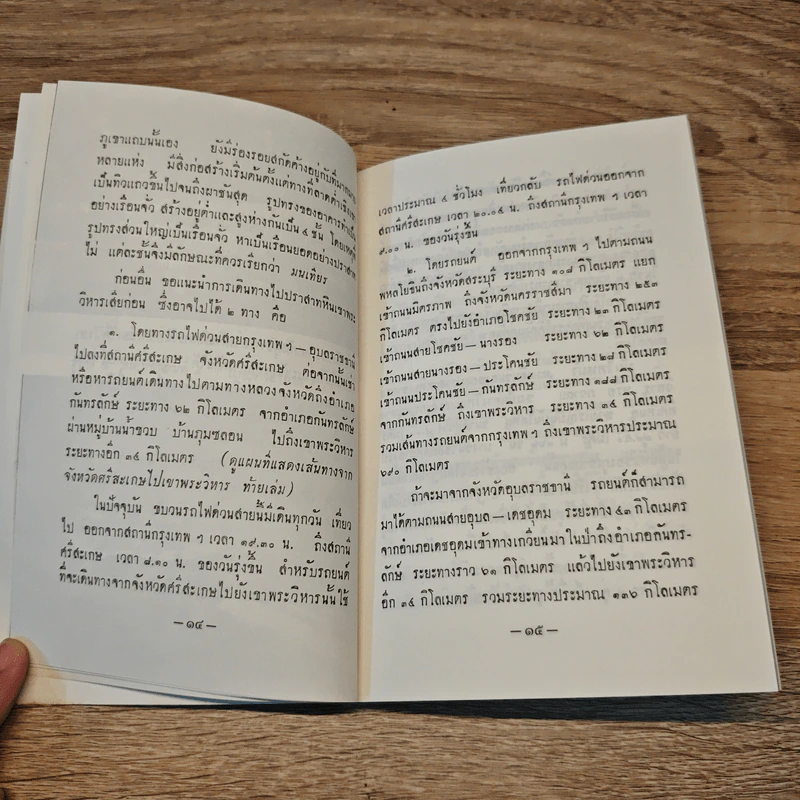 ภูเขาแถบนั้นเอง ยังมีร่องรอยสกัดค้างอยู่กับที่มาก
หลายแห่ง มีสิ่งก่อสร้างเริ่มต้นตั้งแต่ทางที่ลาดต่ำเชิงเขา
เป็นทิวแถวขึ้นไปจนถึงผาชันสุด รูปทรงของอาคารทำเป็น
อย่างเรือนจั่ว สร้างอยู่ต่ำและสูงห่างกันเป็น ๔ ชั้น โดยเหตุที่
รูปทรงส่วนใหญ่เป็นเรือนจั่ว หาเป็นเรือนยอดอย่างปราสาท
ไม่ แต่ละชั้นจึงมีลักษณะที่ควรเรียกว่า มนเทียร
ก่อนอื่น ขอแนะนำการเดินทางไปปราสาทหินเขาพระ
วิหารเสียก่อน ซึ่งอาจไปได้ ๒ ทาง คือ
๑. โดยทางรถไฟด่วนสายกรุงเทพ ฯ — อุบลราชธานี
ไปลงที่สถานีศรีสะเกษ จังหวัดศรีสะเกษ ต่อจากนั้นเช่า
หรือหารถยนต์เดินทางไปตามทางหลวงจังหวัดถึงอำเภอ
กันทรลักษ์ ระยะทาง ๖๒ กิโลเมตร จากอำเภอกันทรลักษ์
ผ่านหมู่บ้านน้ำขวบ บ้านภูมซลอน ไปถึงเขาพระวิหาร
ระยะทางอีก ๓๔ กิโลเมตร (ดูแผนที่แสดงเส้นทางจาก
จังหวัดศรีสะเกษไปเขาพระวิหาร ท้ายเล่ม)
ในปัจจุบัน ขบวนรถไฟด่วนสายนี้มีเดินทุกวัน เที่ยว
ไป ออกจากสถานีกรุงเทพ ฯ เวลา ๑๙.๓๐ น. ถึงสถานี
ศรีสะเกษ เวลา ๘.๑๐ น. ของวันรุ่งขึ้น สำหรับรถยนต์
ที่จะเดินทางจากจังหวัดศรีสะเกษไปยังเขาพระวิหารนั้นใช้
— ๑๔ —
เวลาประมาณ ๔ ชั่วโมง เที่ยวกลับ รถไฟด่วนออกจาก
สถานีศรีสะเกษ เวลา ๒๐.๐๔ น. ถึงสถานีกรุงเทพ ฯ เวลา
๙.๑๐ น. ของวันรุ่งขึ้น
๒. โดยรถยนต์ ออกจากกรุงเทพ ฯ ไปตามถนน
พหลโยธินถึงจังหวัดสระบุรี ระยะทาง ๑๐๘ กิโลเมตร แยก
เข้าถนนมิตรภาพ ถึงจังหวัดนครราชสีมา ระยะทาง ๒๕๓
กิโลเมตร ตรงไปยังอำเภอโชคชัย ระยะทาง ๒๓ กิโลเมตร
เข้าถนนสายโชคชัย — นางรอง ระยะทาง ๖๒ กิโลเมตร
เข้าถนนสายนางรอง — ประโคนชัย ระยะทาง ๒๘ กิโลเมตร
เข้าถนนประโคนชัย — กันทรลักษ์ ระยะทาง ๑๘๘ กิโลเมตร
จากกันทรลักษ์ ถึงเขาพระวิหาร ระยะทาง ๓๔ กิโลเมตร
รวมเส้นทางรถยนต์จากกรุงเทพ ฯ ถึงเขาพระวิหารประมาณ
๖๙๐ กิโลเมตร
ถ้าจะมาจากจังหวัดอุบลราชธานี รถยนต์ก็สามารถ
มาได้ตามถนนสายอุบล — เดชอุดม ระยะทาง ๔๓ กิโลเมตร
จากอำเภอเดชอุดมเข้าทางเกวียนมาในป่าถึงอำเภอกันทร-
ลักษ์ ระยะทางราว ๖๑ กิโลเมตร แล้วไปยังเขาพระวิหาร
อีก ๓๔ กิโลเมตร รวมระยะทางประมาณ ๑๓๖ กิโลเมตร
— ๑๕ —